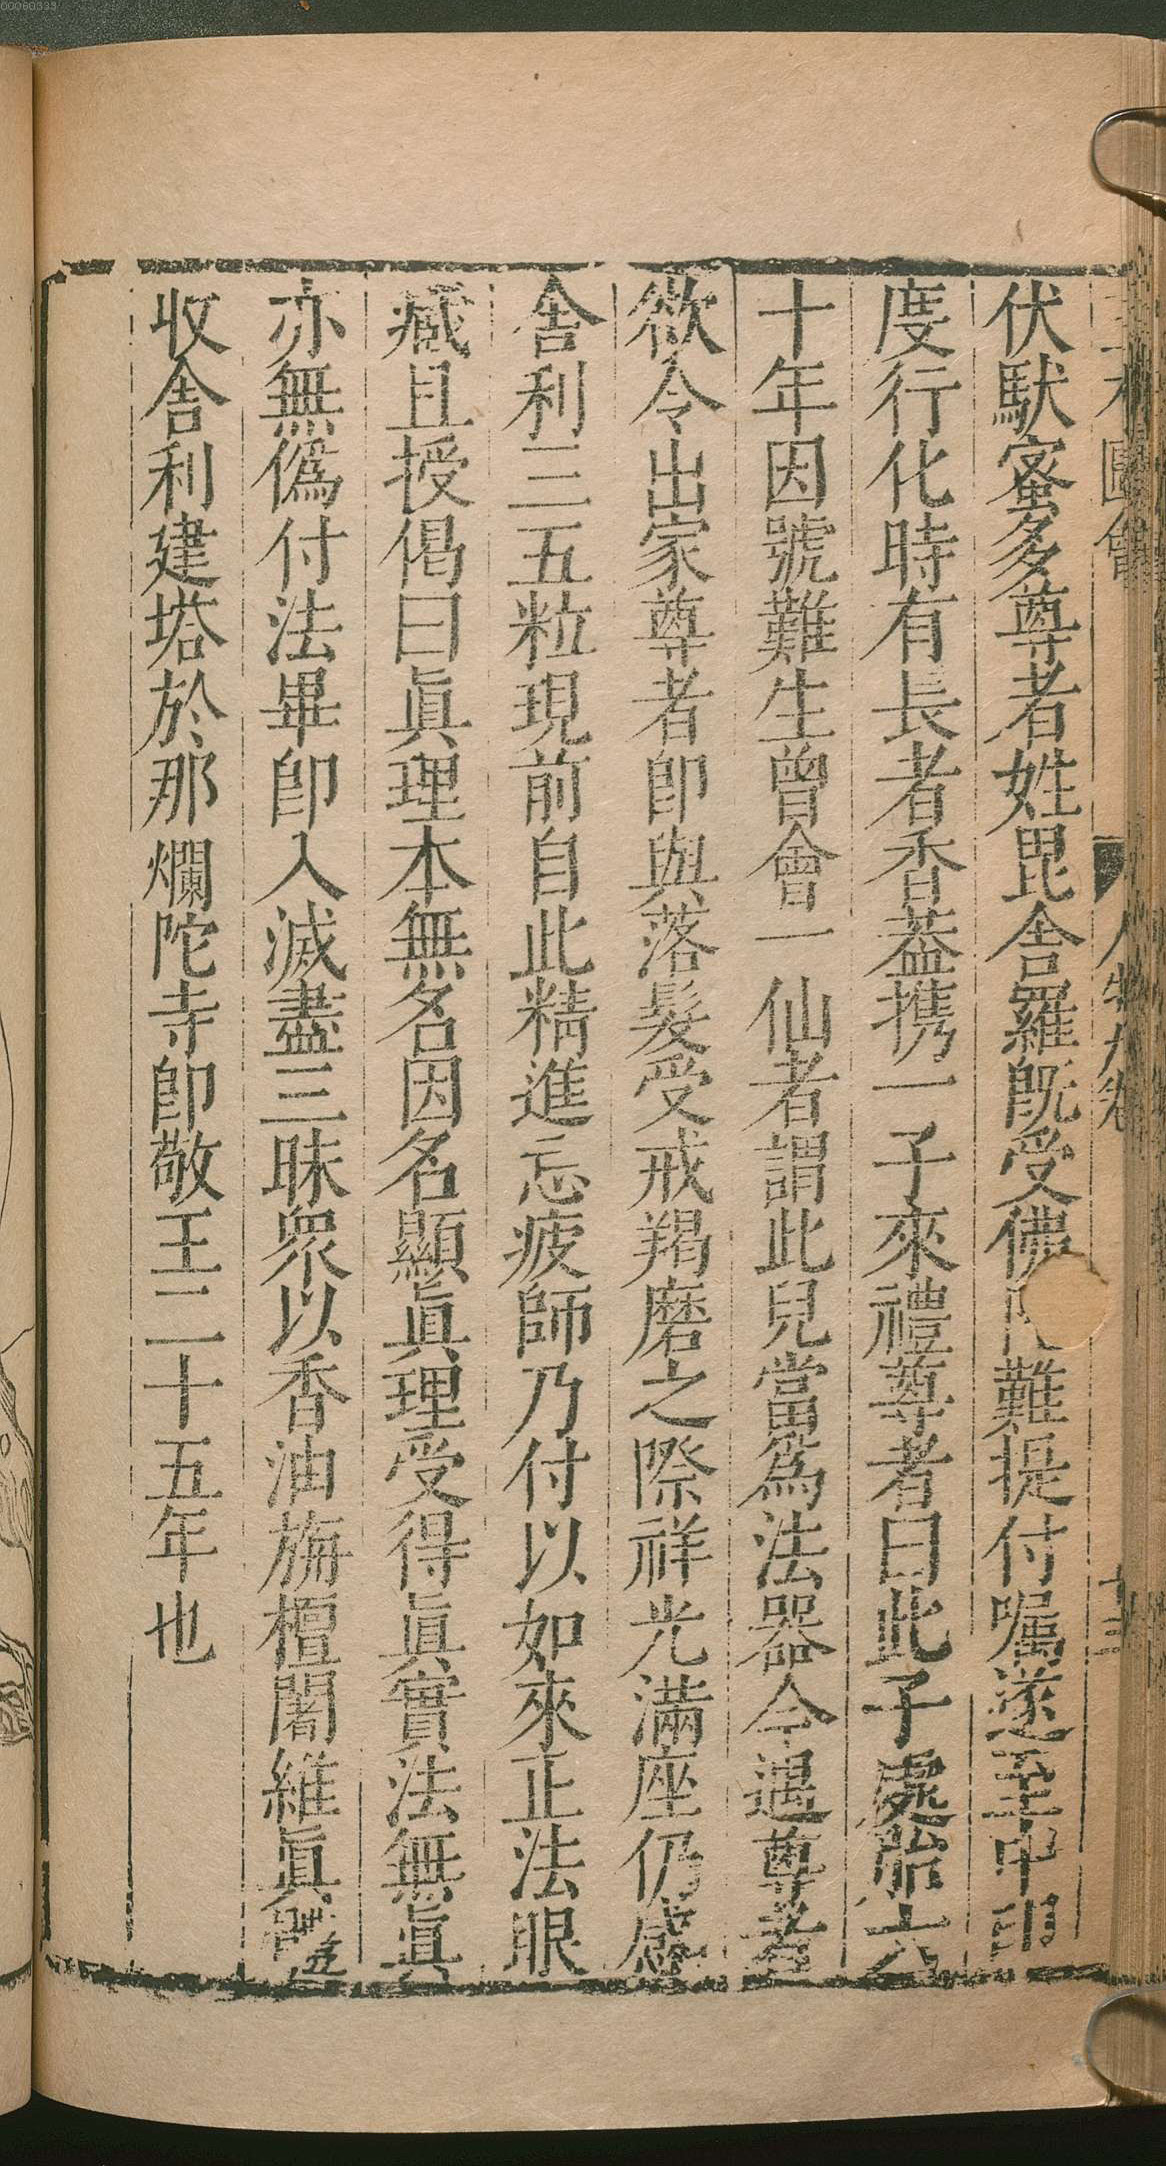 伏馱蜜多尊者姓毘舍羅既受佛難提付囑遂至中印
度行化時有長者香葢携一子來禮尊者曰此子處胎六
十年因號難生曾會一仙者謂此兒當爲法器今遇尊者
欲令出家尊者卽與落髮受戒羯磨之際祥光滿座仍感
舍利三五粒現前自此精進忘疲師乃付以如來正法眼
藏且授偈曰眞理本無名因名顯眞理受得眞實法無眞
亦無僞付法畢卽入滅盡三昧衆以香油旃檀闍維眞體
收舍利建塔於那爛陀寺卽敬王三十五年也
人物九卷
00060333